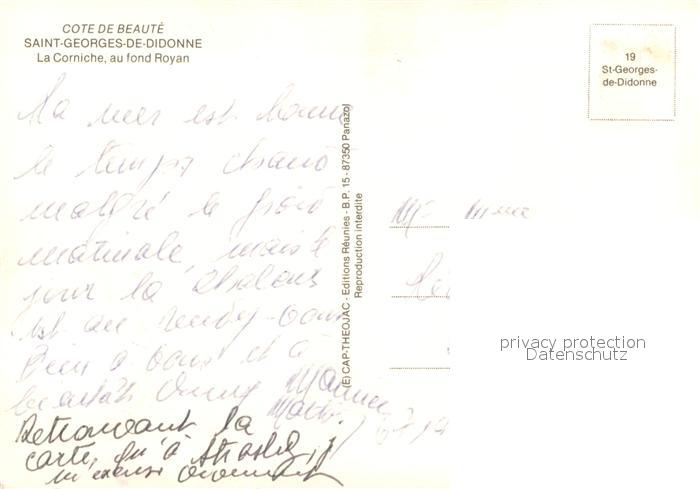 COTE DE BEAUTÉ
SAINT-GEORGES-DE-DIDONNE
La Corniche, au fond Royan
19
St-Georges-
de-Didonne
La mer est bonne
le temps chaud
malgré le froid
matinale, mais le
jour la chaleur
est au rendez-vous
Bien à vous et à
bientôt
Retrouvant la
carte, qu'à
(E) CAP-THEOJAC - Editions Réunies - B.P. 15 - 87350 Panazol
Reproduction interdite
Mr Mme
privacy protection
Datenschutz